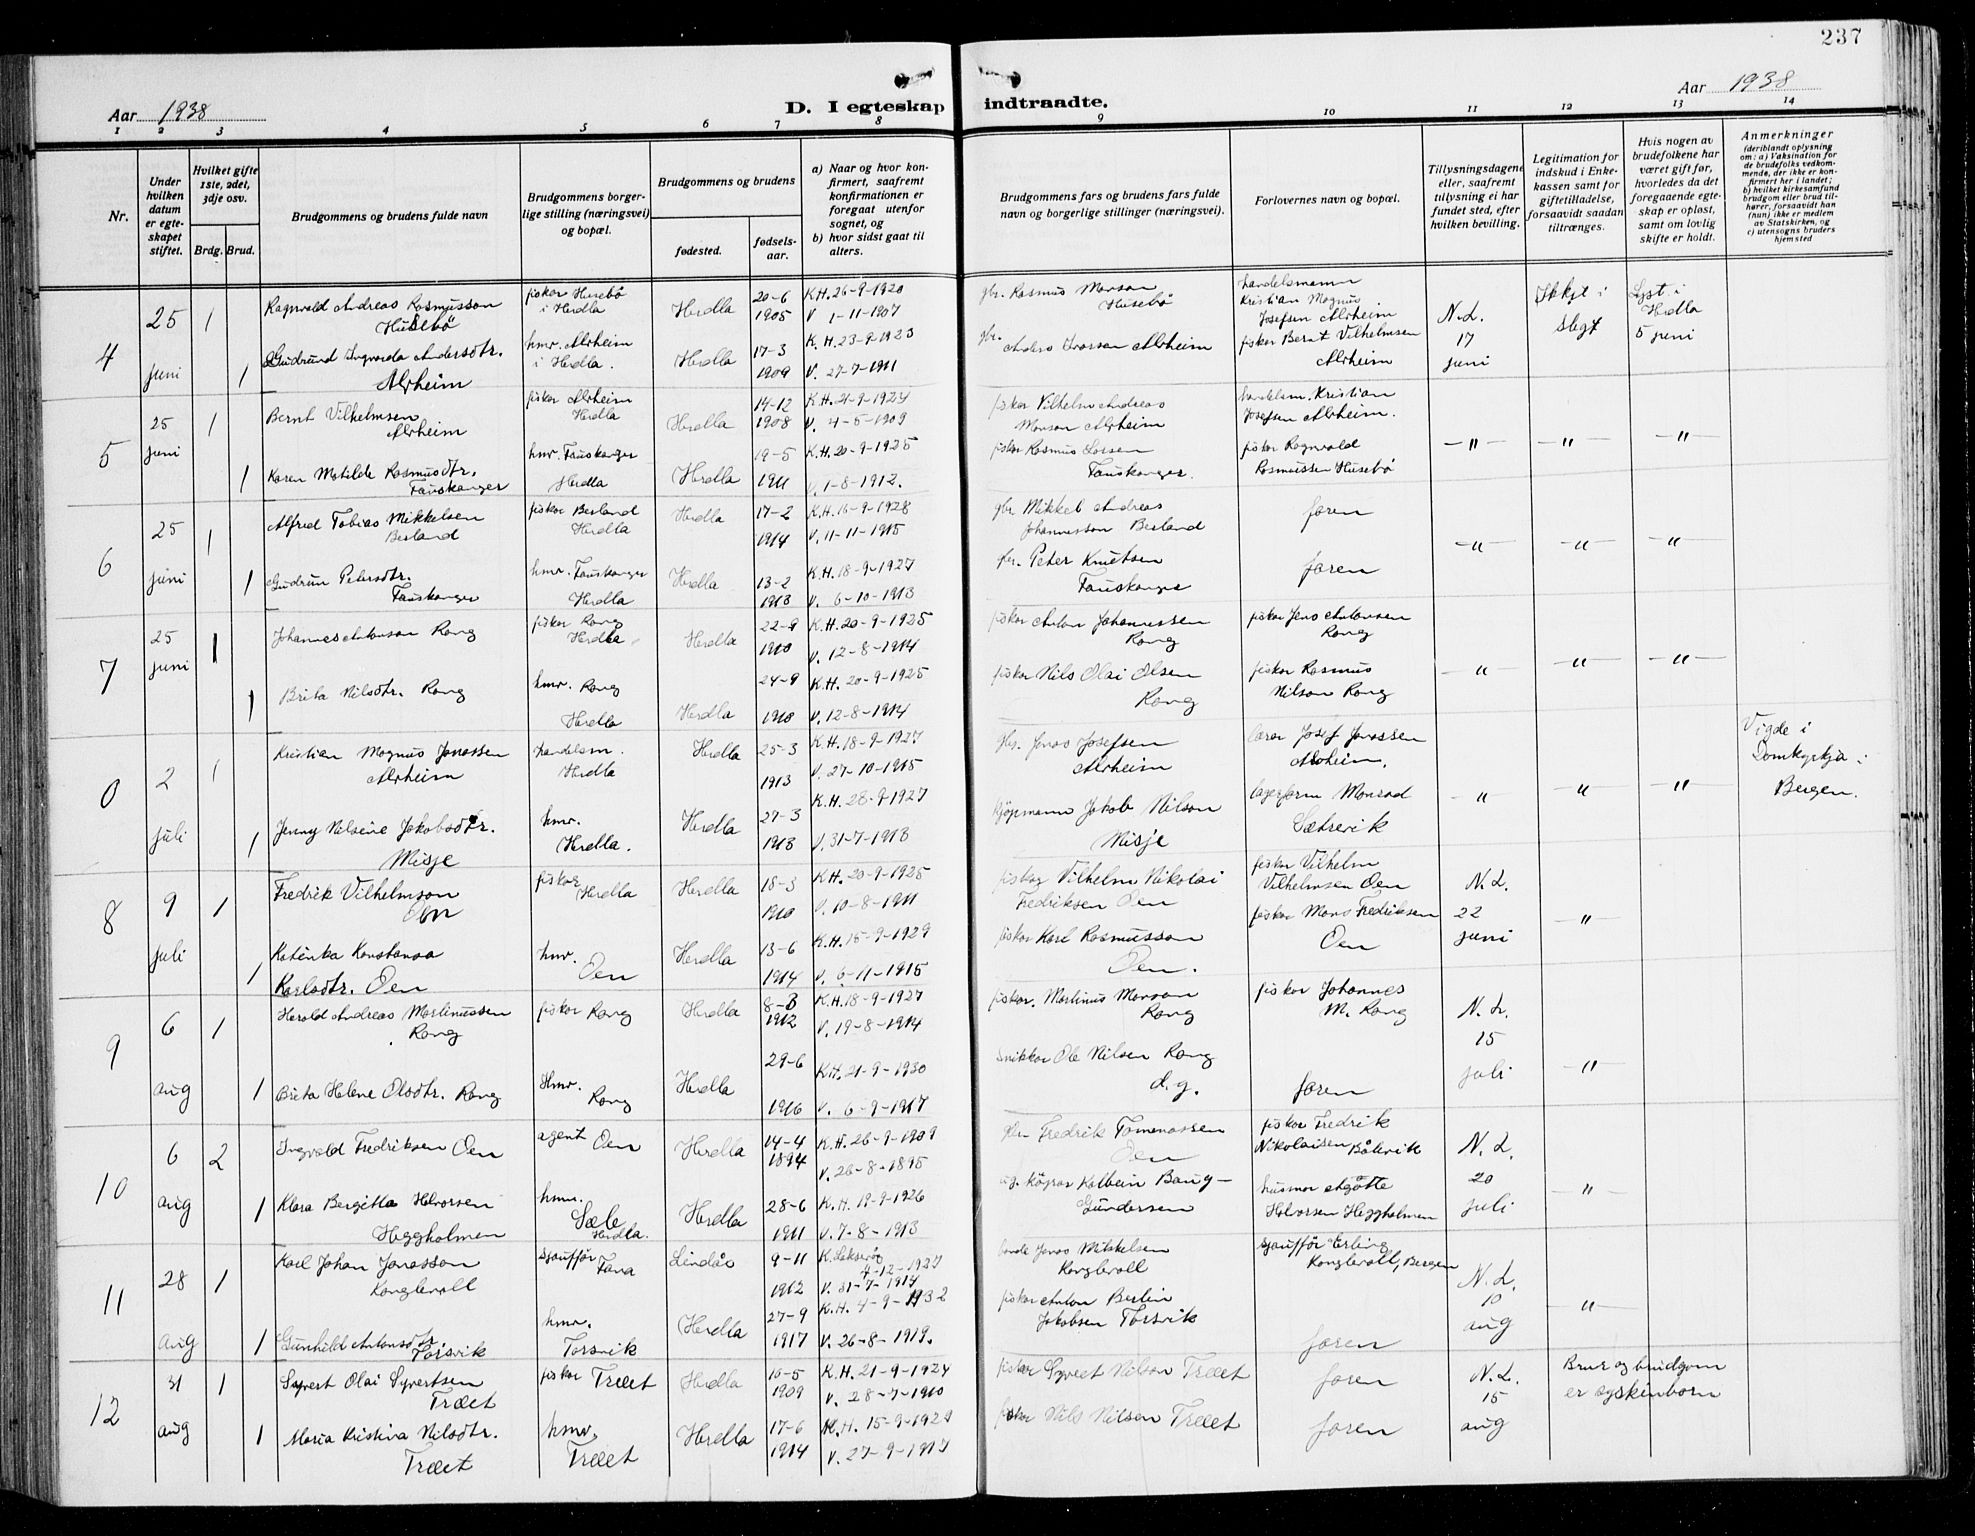 237
Aar 1938
D. I egteskap indtraadte.
Aar 1938
1 2 3 4 5 6 7 8 9 10 11 12 13 14
Nr.
Under hvilken datum er egteskapet stiftet.
Hvilket gifte 1ste, 2det, 3dje osv.
Brdg. Brud.
Brudgommens og brudens fulde navn
Brudgommens borgerlige stilling (næringsvei) og bopæl.
Brudgommens og brudens
fødested.
fødselsaar.
a) Naar og hvor konfirmert, saafremt konfirmationen er foregaat utenfor sognet, og
b) hvor sidst gaat til alters.
Brudgommens fars og brudens fars fulde navn og borgerlige stillinger (næringsvei).
Forlovernes navn og bopæl.
Tillysningsdagene eller, saafremt tillysning ei har fundet sted, efter hvilken bevilling.
Legitimation for indskud i Enkekassen samt for giftetilladelse, forsaavidt saadan tiltrænges.
Hvis nogen av brudefolkene har været gift før, hvorledes da det foregaaende egteskap er opløst, samt om lovlig skifte er holdt.
Anmerkninger
(deriblandt oplysning om: a) Vaksination for de brudefolks vedkommende, der ikke er konfirmert her i landet; b) hvilket kirkesamfund brudgom eller brud tilhører, forsaavidt han (hun) ikke er medlem av Statskirken, og c) utensogns bruders hjemsted
4 25 juni 1 Ragnvald Andreas Rasmussen Husebö fisker Husebö i Herdla Herdla 20-6 1905 K.H. 26-9-1920 V. 1-11-1907 gbr. Rasmus Monsen Husebö handelsmann Kristian Magnus Josefsen Alvheim N.L. 17 juni Skkjt i slegt Lyst i Herdla 5 juni
1 Gudrund Ingvarda Andersdtr. Alvheim hmv. Alvheim i Herdla. Herdla 17-3 1909 K.H. 23-9-1923 V. 27-7-1911 gbr. Anders Larsen Alvheim fisker Bernt Vilhelmsen Alvheim
5 25 juni 1 Bernt Vilhelmsen Alvheim fisker Alvheim Herdla Herdla 14-12 1908 K.H. 21-9-1924 V. 4-5-1909 fisker Vilhelm Andreas Monsen Alvheim handelsm. Kristian Josefsen Alvheim. -"- -"- -"-
1 Karen Matilde Rasmusdtr. Fauskanger hmv. Fauskanger Herdla Herdla 19-5 1911 K.H. 20-9-1925 V. 1-8-1912. fisker Rasmus Larsen Fauskanger. fisker Ragnvald Rasmussen Husebö
6 25 juni 1 Alfred Tobias Mikkelsen Besland fisker Besland Herdla Herdla 17-2 1914 K.H. 16-9-1928 V. 11-11-1915 gbr Mikkel Andreas Johannessen Besland faren -"- -"- -"-
1 Gudrun Petersdtr. Fauskanger hmv. Fauskanger Herdla Herdla 13-2 1913 K.H. 18-9-1927 V. 6-10-1913 gbr. Peter Knutsen Fauskanger faren
7 25 juni 1 Johannes Antonsen Rong fisker Rong Herdla Herdla 22-9 1910 K.H. 20-9-1925 V. 12-8-1914 fisker Anton Johannessen Rong fisker Jens Antonsen Rong -"- -"- -"-
1 Brita Nilsdtr. Rong hmv. Rong Herdla Herdla 24-9 1910 K.H. 20-9-1925 V. 12-8-1914 fisker Nils Olai Olsen Rong fisker Rasmus Nilsen Rong
0 2 juli 1 Kristian Magnus Jonassen Alvheim handelsm. Herdla Herdla 25-3 1913 K.H. 18-9-1927 V. 27-10-1915 gbr. Jonas Josefsen Alvheim lærer Josef Jonassen Alvheim. -"- -"- -"- Vigde i Domkyrkja i Bergen.
1 Jenny Nilsine Jakobsdtr. Misje hmv. Herdla. Herdla 27-3 1913 K.H. 28-9-1927 V. 31-7-1913 kjöpmann Jakob Nilsen Misje lagerform Monrad Sætrevik
8 9 juli 1 Fredrik Vilhelmsen Oen fisker Herdla Herdla 18-3 1910 K.H. 20-9-1925 V. 10-8-1911 fisker Vilhelm Nikolai Fedriksen Oen fisker Vilhelm Vilhelmsen Oen N.L. 22 juni -"-
1 Katinka Konstansa Karlsdtr. Oen hmv. Oen Herdla 13-6 1914 K.H. 15-9-1929 V. 6-11-1915 fisker Karl Rasmussen Oen. fisker Mons Fedriksen Oen
9 6 aug 1 Harold Andreas Martinussen Rong fisker Rong Herdla 8-3 1912 K.H. 18-9-1927 V. 19-8-1914 fisker. Martinus Monsen Rong fisker Johannes M. Rong N.L. 15 juli -"-
1 Brita Helene Olsdtr. Rong Hmv. Rong Herdla 29-6 1916 K.H. 21-9-1930 V. 6-9-1917 snikkar Ole Nilsen Rong d.y. faren
10 6 aug 2 Ingvald Fredriksen Oen agent Oen Herdla 14-4 1894 K.H. 26-9-1909 V. 26-8-1895 gbr. Fredrik Tomenassen Oen fisker Fredrik Nikolaisen Bålevik N.L. 20 juli -"-
1 Klara Bergitta Halvorsen Heggholmen hmv. Sæle Herdla. Herdla 28-6 1911 K.H. 19-9-1926 V. 7-8-1913 Kolbein Baug-Gundersen husmor Agåtte Halvorsen Heggholmen
11 28 aug 1 Karl Johan Jonassen Konglevoll sjauffør Fana Lindås 9-11 1912 K. Sakservåg 4-12-1927 V. 31-7-1914 Jonas Mikkelsen Konglevoll sjauffør Erling Konglevoll, Bergen N.L. 10 aug -"-
1 Gunhild Antonsdtr. Torsvik hmv. Torsvik Herdla 27-9 1917 K.H. 4-9-1932 V. 26-8-1919. fisker Anton Berlin Jakobsen Torsvik faren
12 31 aug 1 Syvert Olai Syvertsen Træet fisker Træet Herdla 16-5 1909 K.H. 21-9-1924 V. 28-7-1910 fisker Syvert Nilsen Træet faren N.L. 15 aug Brur og brudgom er syskinborn
1 Maria Kristina Nilsdtr. Træet hmv. Træet Herdla 17-6 1914 K.H. 15-9-1929 V. 27-9-1917 fisker Nils Nilsen Træet faren